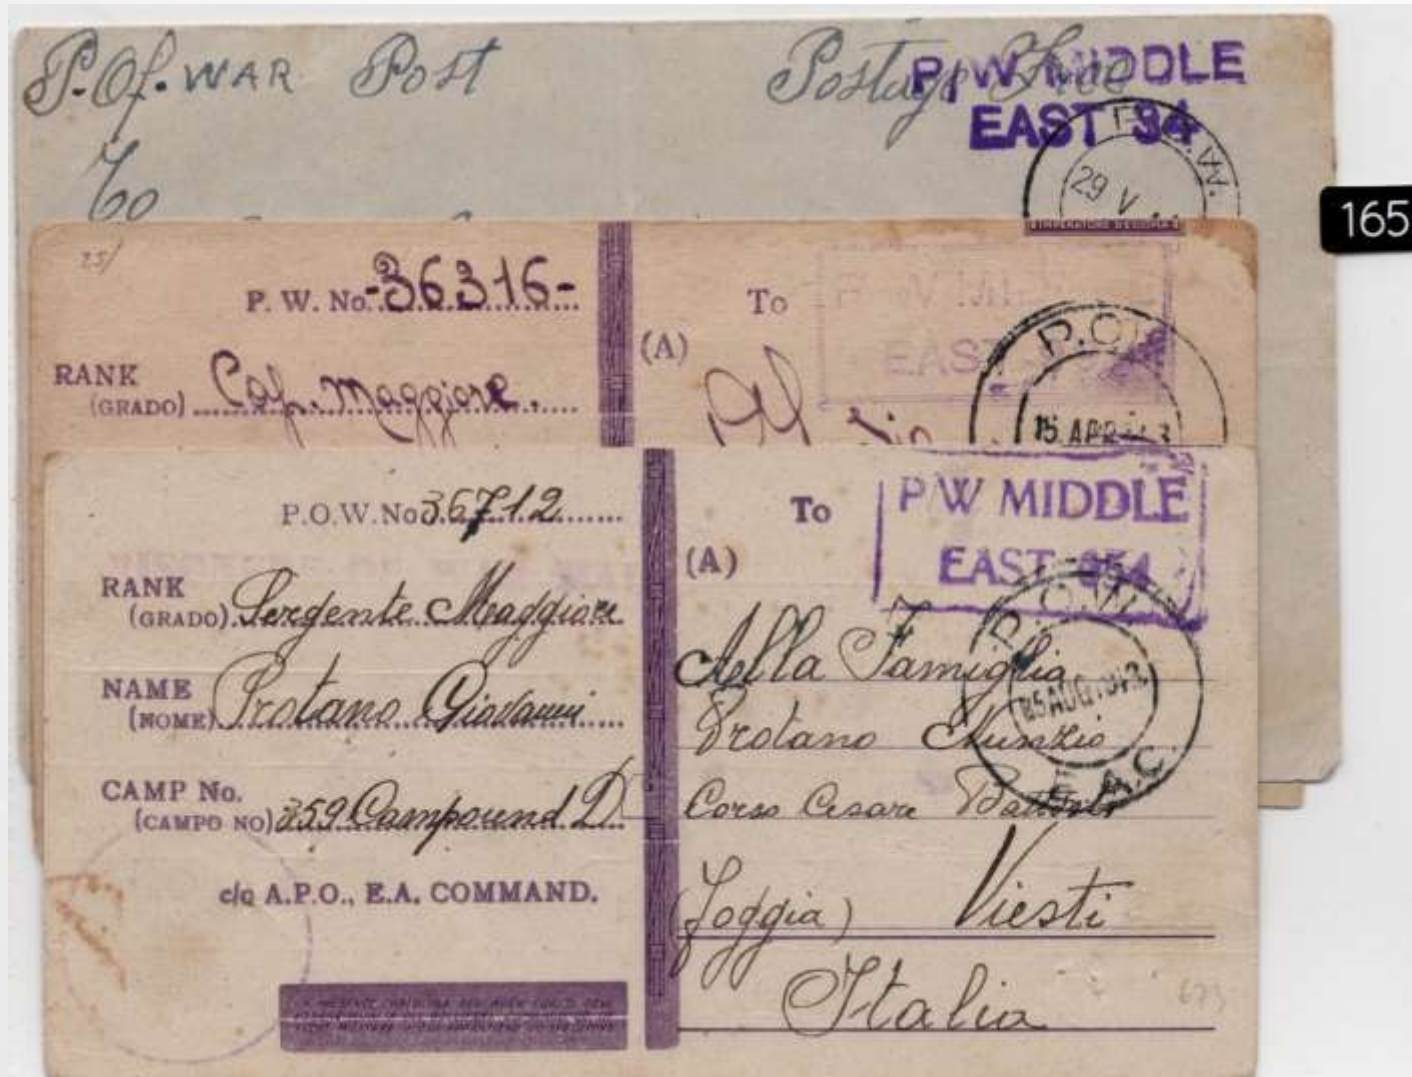 P.Of.WAR Post Postage Free
P/W MIDDLE
EAST 34
P.O.W.
29 V
To
165
25/
P. W. No. -36316-
RANK
(GRADO) Cap. Maggiore.
To
(A)
P/W MIDDLE
EAST
P.O.W.
15 APR
P.O.W. No 36712
RANK
(GRADO) Sergente Maggiore
NAME
(NOME) Protano Giovanni
CAMP No.
(CAMPO NO) 359 Campound D
c/o A.P.O., E.A. COMMAND.
To
(A)
P/W MIDDLE
EAST
P.O.W.
25 AUG 1943
E.A.C.
Alla Famiglia
Protano Nunzio
Corso Cesare Battisti
(Foggia) Viesti
Italia
673